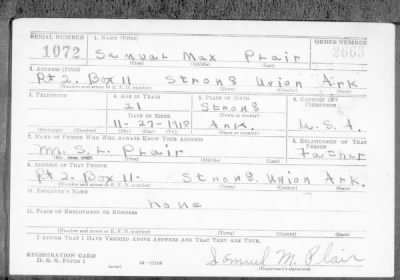 SERIAL NUMBER 1. NAME (Print) ORDER NUMBER
1072 Samual Max Plair
(First) (Middle) (Last)
2. ADDRESS (Print)
Rt 2. Box 11 Strong Union Ark
(Number and street or R. F. D. number) (Town) (County) (State)
3. TELEPHONE 4. AGE IN YEARS 5. PLACE OF BIRTH 6. COUNTRY OF CITIZENSHIP
21 Strong
DATE OF BIRTH (Town or county)
11-27-1918 Ark. U.S.A.
(Exchange) (Number) (Mo.) (Day) (Yr.) (State or country)
7. NAME OF PERSON WHO WILL ALWAYS KNOW YOUR ADDRESS 8. RELATIONSHIP OF THAT PERSON
M. S. L. Plair Father
9. ADDRESS OF THAT PERSON
Rt 2. Box 11. Strong. Union Ark.
(Number and street or R. F. D. number) (Town) (County) (State)
10. EMPLOYER'S NAME
None
11. PLACE OF EMPLOYMENT OR BUSINESS
(Number and street or R. F. D. number) (Town) (County) (State)
I AFFIRM THAT I HAVE VERIFIED ABOVE ANSWERS AND THAT THEY ARE TRUE.
REGISTRATION CARD
D. S. S. Form 1 (over) Samuel M. Plair
(Registrant's signature)